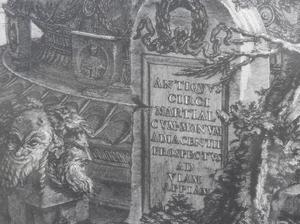 ANTIQVVS
CIRCI
MARTIAL
CVM MONVM
ADIACENTII
PROSPECTVS
AD
VIAM
APPIAM